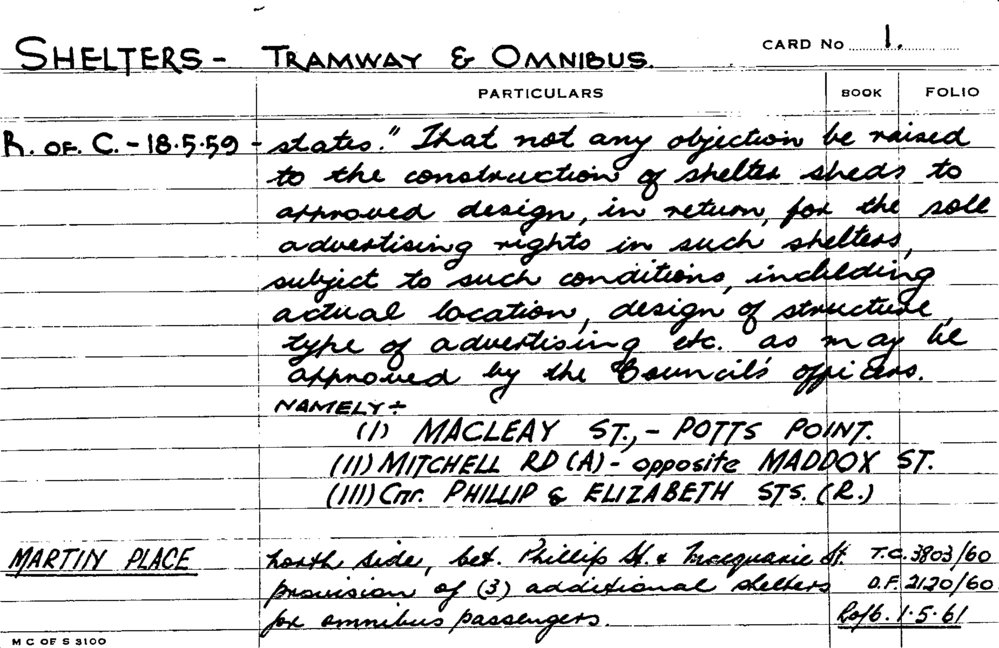 SHELTERS - TRAMWAY & OMNIBUS.
CARD No 1.
PARTICULARS BOOK FOLIO
R. OF. C. - 18.5.59 - states." That not any objection be raised
to the construction of shelter sheds to
approved design, in return, for the sole
advertising rights in such shelters,
subject to such conditions, including
actual location, design of structure,
type of advertising etc. as may be
approved by the Council's officers.
NAMELY:-
(I) MACLEAY ST., - POTTS POINT.
(II) MITCHELL RD (A) - opposite MADDOX ST.
(III) Cnr. PHILLIP & ELIZABETH STS. (R.)
MARTIN PLACE north side, bet. Phillip St. & Macquarie St. T.C. 3803/60
provision of (3) additional shelters D.F. 2120/60
for omnibus passengers. 1.5.61
M C OF S 3100